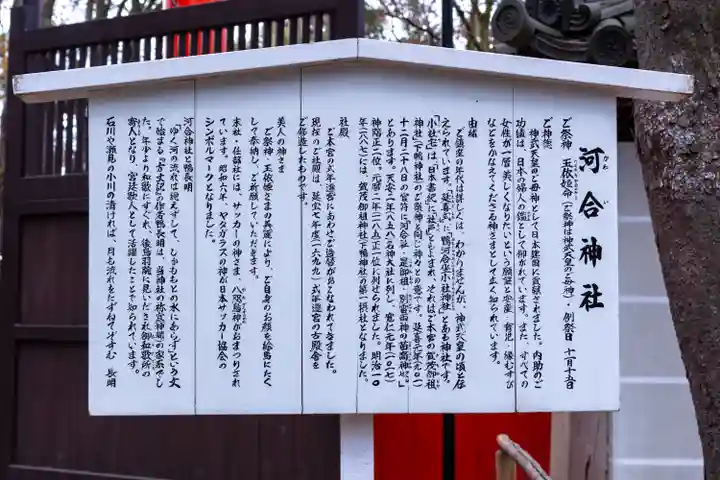 河合神社
かわ い
ご祭神　玉依姫命（ご祭神は神武天皇のご母神）・例祭日　十一月十五日
ご神徳
神武天皇のご母神として日本建国に貢献されました。内助のご
功績は、日本の婦人の鑑として仰がれています。また、すべての
女性が一層美しくなりたいという願望と安産・育児・縁むすび
などをかなえてくださる神さまとして広く知られています。
由緒
ご鎮座の年代は詳しくは、わかりませんが、神武天皇の頃と伝
えられています。「延喜式」に「鴨河合坐小社神社」とある神社です。
「小社宅」は、「日本書紀」に「社戸」とよまれ、それはご本宮の賀茂御祖
神社（下鴨神社）のご祭神と同じ神々との意です。延喜元年（九〇一）
十二月二十八日の官符に「河合社・是御祖・別雷両神の苗裔神也。」
とあります。天安二年（八五八）名神大社に列し、寛仁元年（一〇一七）
神階正二位、元暦二年（一一八五）正一位に列せられました。明治一〇
年（一八七七）には、賀茂御祖神社（下鴨神社）の第一摂社となりました。
社殿
ご本宮の式年遷宮にあわせご造替がおこなわれてきました。
現在のご社殿は、延宝七年度（一六七九）式年遷宮の古殿舎を
ご修造したものです。
美人の神さま
ご祭神・玉依姫さまの真運により、ご自身のお顔を絵馬にたく
して奉納し、ご祈願していただきます。
末社・任部社には、サッカーの神さま、八咫烏神がおまつりされ
ています。昭和六年、ヤタガラスの神が日本サッカー協会の
シンボルマークとなりました。
河合神社と鴨長明
「ゆく河の流れは絶えずして、しかももとの水にあらず」という文
で始まる『方丈記』の作者鴨長明は、当神社の祢宜神職の家系でし
た。年少より和歌にすぐれ、後鳥羽院に見いだされ御和歌所の
寄人となり、宮廷歌人として活躍したことで知られています。
石川や瀬見の小川の清ければ、月も流れをたずねてぞすむ　長明